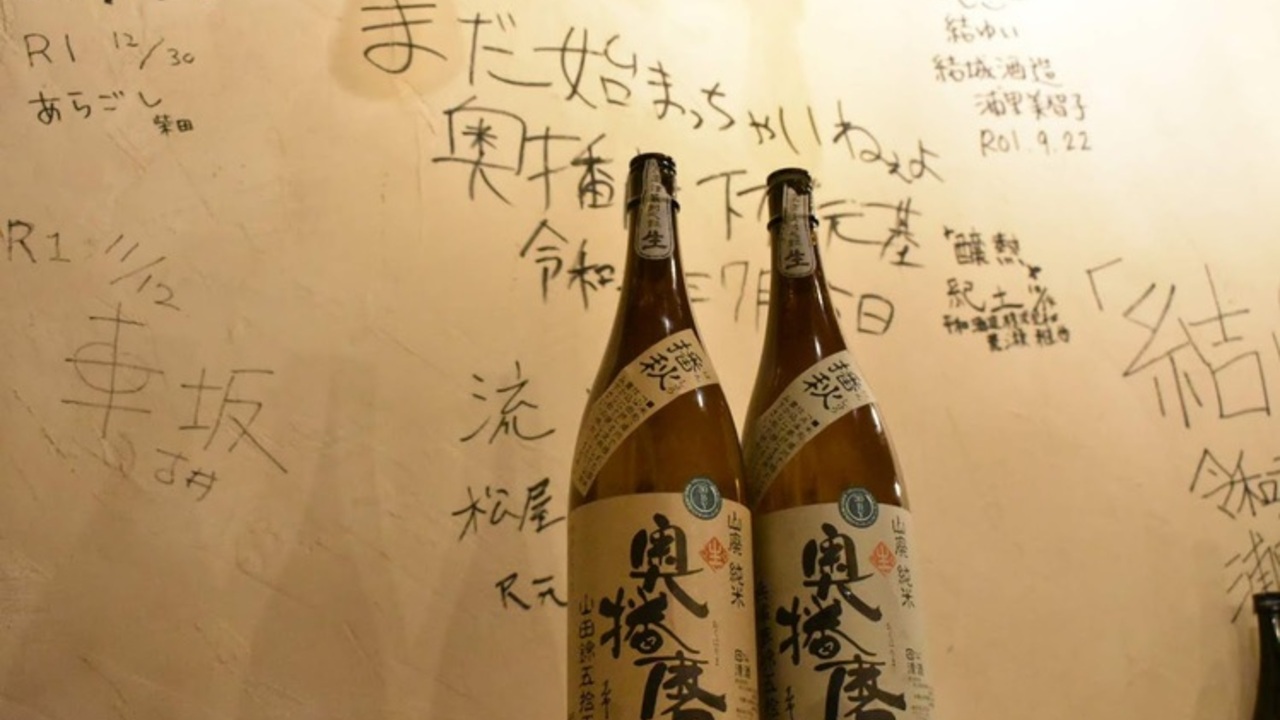 R1 12/30
あらごし
柴田
まだ始まっちゃいねぇよ
奥播
下
元基
令和
7月
日
結ゆい
結城酒造
浦里美智子
R01.9.22
R1 11/12
車坂
古井
醸熱
紀土
「結
令和
流
松屋
R元
生
播秋
山廃 純米
生
奥播磨
山田錦五拾五
生
播秋
山廃 純米
生
奥播磨